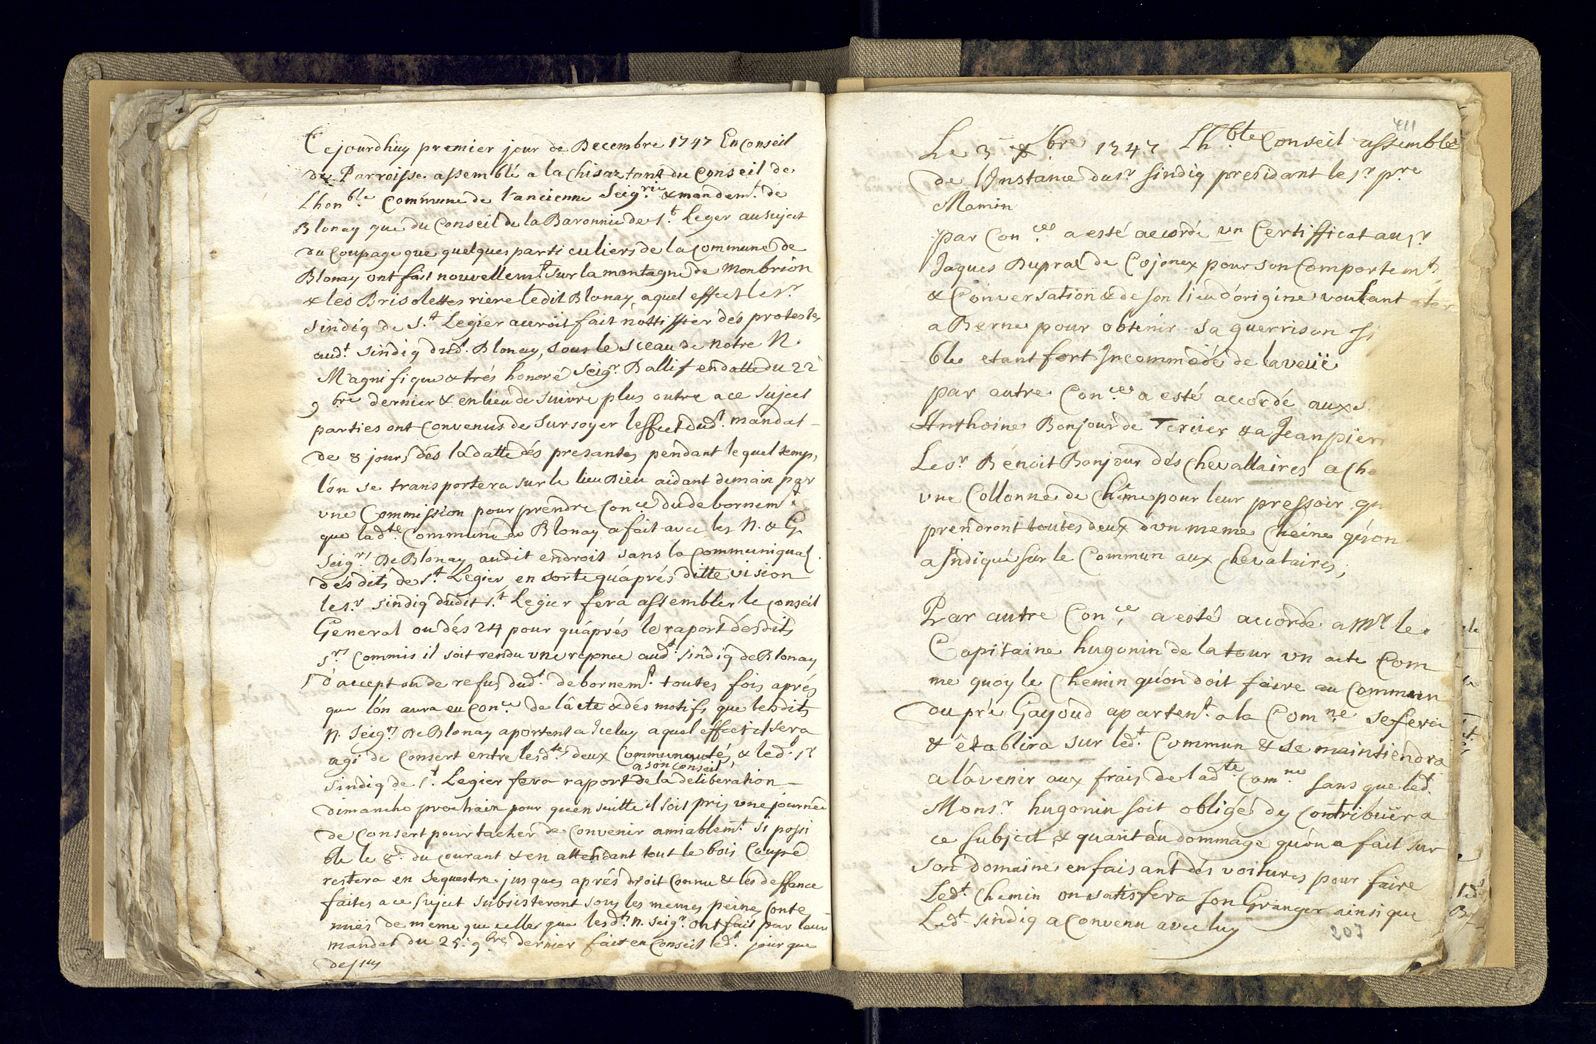 Cejourdhuy premier jour de Decembre 1747 En Conseil
de Parroisse assemblé a la Chisaz tant du Conseil de
Lhon.ble Commune de l'ancienne Seig.rie & mandem.t de
Blonay que du Conseil de la Baronnie de S.t Leger au sujet
du Coupage que quelques particuliers de la Commune de
Blonay ont fait nouvellem.t sur la montagne de Monbrion
& les Brisolettes riere ledit Blonay, aquel effect le s.r
Sindiq de S.t Legier auroit fait nottiffier des protestes
aud.t Sindiq dud.t Blonay, sous le sceau de notre N.
Magnifique & trés honoré Seig.r Ballif en datte du 22
9.bre dernier & en lieu de suivre plus outre a ce sujet
parties ont convenus de sursoyer leffect dud.t mandat
de 8 jours dés la datte des presantes pendant lequel temps
lon se transportera sur le lieu Dieu aidant demain par
une Commission pour prendre Con.ce du debornem.t
que lad.te Commune de Blonay a fait avec les N. & G
Seig.rs De Blonay audit endroit sans la Communiquat.
desdits de S.t Legier en sorte qu'aprés ditte vision
le s.r sindiq dudit S.t Legier fera assembler le Conseil
General ou dés 24 pour qu'aprés le raport desdits
s.rs Commis il soit rendu une reponce aud.t sindiq de Blonay
d'accept ou de refus dud.t debornem.t toutes fois aprés
que l'on aura eu Con.ce de lacte & dés motifs que lesdits
N. Seig.rs De Blonay aportent a Iceluy aquel effect il sera
agi de Consert entre lesd.tes deux Communauté, & led.t s.r
a son Conseil
sindiq de S.t Legier fera raport de la deliberation
dimanche prochain pour qu'en suitte il soit pris une journée
de Consert pour tacher de convenir amiablem.t si possi
ble le 8.e du courant & en attendant tout le bois Coupé
restera en sequestre jusques aprés droit connu & les deffence
faites a ce sujet subsisteront sous les memes peine conte
nuës de meme que celle que lesd.ts N. Seig.rs ont fait par leur
mandat du 25.e 9.bre dernier fait en Conseil led.t jour que
dessus
411
Le 3.e Xbre 1747 Lh.ble Conseil assemblé
de l'Instance du s.r Sindiq presidant le s.r p.re
Mamin
par Con.ces a esté accordé un Certifficat au s.r
Jaques Dupraz de Cojonex pour son Comportem.t
& Conversation & de son lieu d'origine voulant
a Berne pour obtenir sa guerrison
ble etant fort Incommodé de la veuë
par autre Con.ces a esté accordé aux s.
Anthoine Bonjour de Tercier & a Jean pier
Le s.r Benoit Bonjour des Chevallaires a
une Collonne de Chêne pour leur pressoir
prendront toutes deux d'un meme Cheine qu'on
a Indiqué sur le Commun aux Chevalaires;
Par autre Con.ces a esté accordé a M.r le
Capitaine hugonin de la tour un acte Com
me quoy le Chemin qu'on doit faire au Commun
au pré Gayoud apartem.t a la Com.ne se fera
& établira sur led.t Commun & se maintiendra
a lavenir aux frais de lad.te Com.ne sans que led.t
Mons.r hugonin soit obligé dy contribuër a
ce subject & quant au dommage qu'on a fait sur
son domaine en faisant dés voitures pour faire
Led.t Chemin on satisfera son Granger ainsi que
Led.t sindiq a convenu avec luy
207